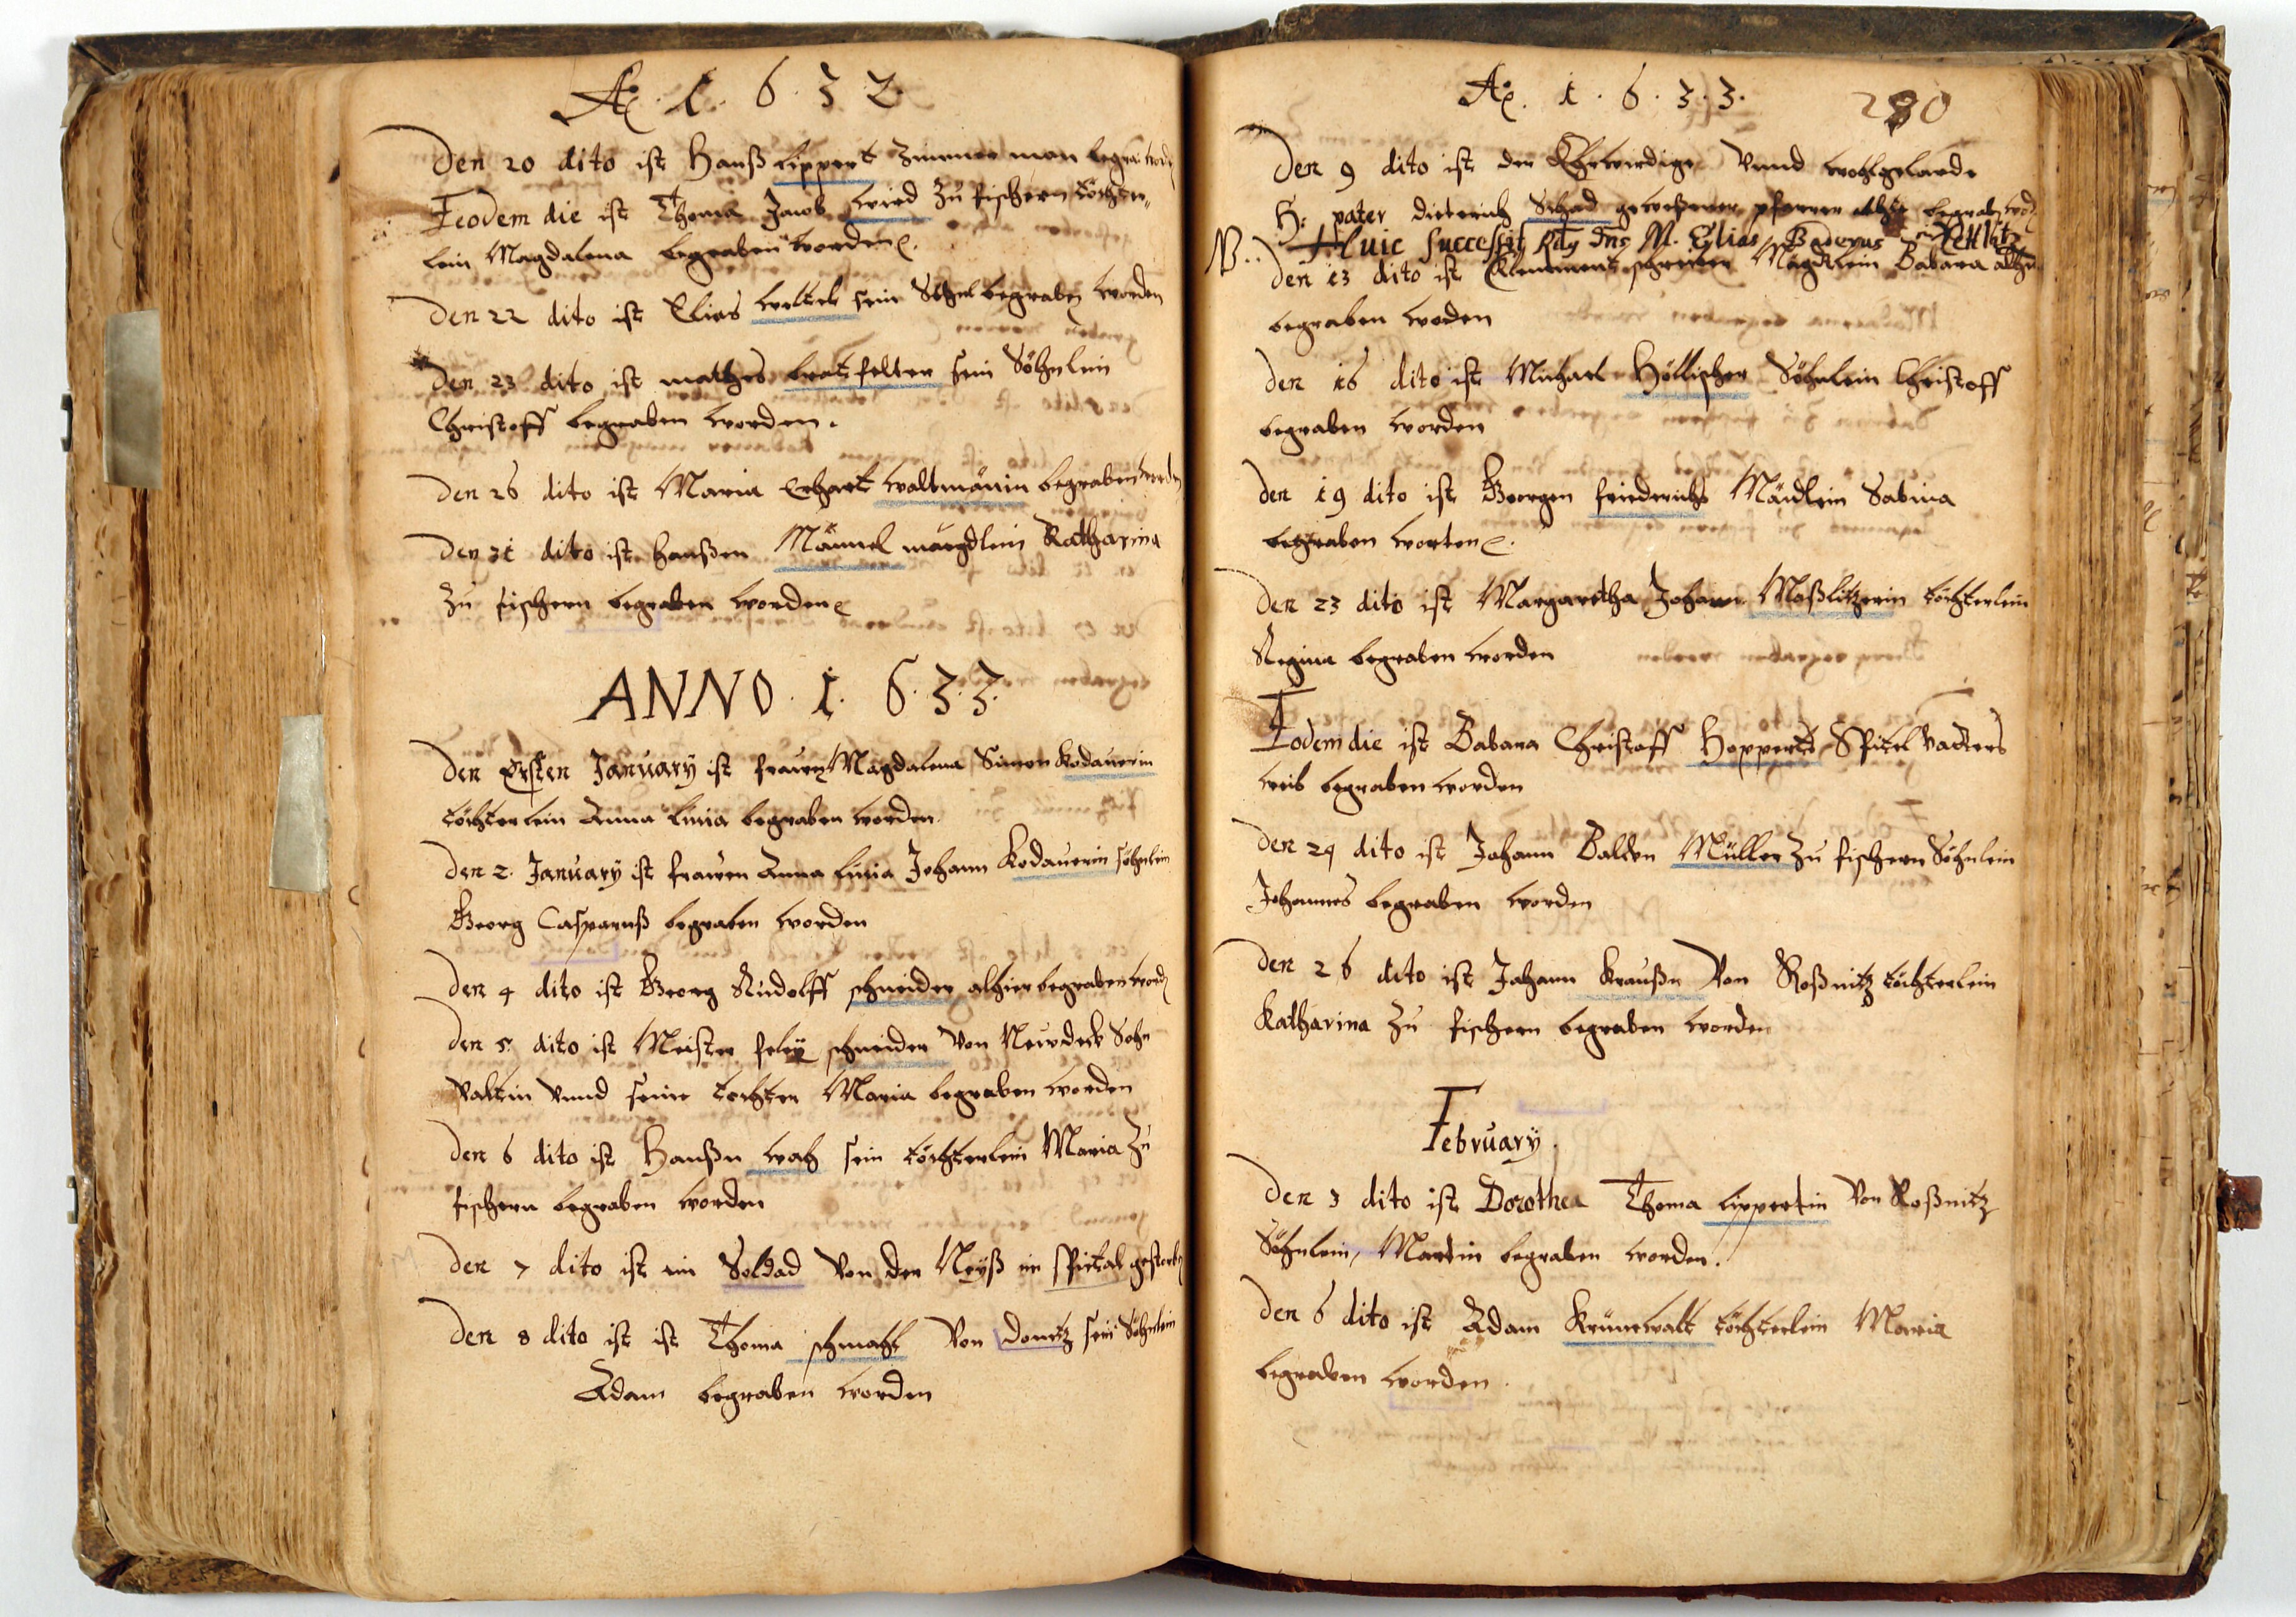 Ao. 1. 6. 3. 2.
Den 20 dito ist Hanß Lippert Zimmerman begrab. word.
Eeodem die ist Thoma Jacob Wird zu fischern töchter-
lein Magdalena begraben worden.
Den 22 dito ist Elias begraben worden
Den 23 dito ist mathes sein Söhnlein
Christoff begraben worden.
Den 26 dito ist Maria Erhart Waltmänin begraben worden
Den 31 dito ist Hanßen Männel mäigdlein Katharina
zu fischern begraben worden
ANNO. 1. 6. 3. 3.
Den Ersten January ist frawen Magdalena Simon Kodauerin
töchterlein Anna begraben worden.
Den 2. January ist frawen Anna Johann Kodauerin söhnlein
Georg Casparuß begraben worden
Den 4 dito ist Georg Rudolff schneider alhier begraben word
Den 5. dito ist Meister schneider von Newdeck Sohn
Valtin vnnd seine tochter Maria begraben worden
Den 6 dito ist Hanßn sein töchterlein Maria zu
fischern begraben worden
Den 7 dito ist ein Soldad von der Neyß im spietal gestorben
Den 8 dito ist ist Thoma schmahl von Donitz sein Söhnlein
Adam begraben worden
Ao. 1. 6. 3. 3.
280
Den 9 dito ist der Ehrwirdige vnnd wohlgelarde
H: pater Dieterich Schad gewesener pfarrer alhie begrab. word.
NB.. Huic successit Rdg Dns M. Elias Baderus
Den 13 dito ist Mägdlein Babara alhie
begraben woden
Den 16 dito ist Michael Höllischer Söhnlein Christoff
begraben worden
Den 19 dito ist Georgen friedrichs Mäidlein Sabina
begraben worten.
Den 23 dito ist Margaretha Johann Maßlitzerin töchterlein
Regina begraben worden
Eodem die ist Babara Christoff Hopperts Spitel Vatters
weib begraben worden
Den 24 dito ist Johann Balten Müller zu fischern Söhnlein
Johannes begraben worden
Den 26 dito ist Johann Kraußn von Roßnitz töchterlein
Katharina zu fischern begraben worden
February.
Den 3 dito ist Dorothea Thoma Lippertin von Roßnitz
Söhnlein, Martin begraben worden.
Den 6 dito ist Adam Krünewalt töchterlein Maria
begraben worden.